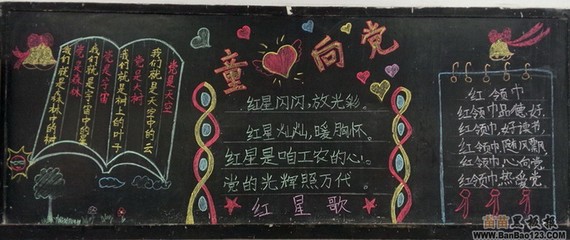 童 向党
党是天空
我们就是天空中的云
党是大树
我们就是树上的叶子
党是宇宙
我们就是宇宙中的星
党是森林
我们就是森林中的树
红星闪闪,放光彩。
红星灿灿,暖胸怀。
红星是咱工农的心。
党的光辉照万代。
红星歌
红领巾
红领巾品德好,
红领巾,好读书,
红领巾,随风飘,
红领巾,心向党,
红领巾,热爱党。
苗苗黑板报
www.BanBao123.com